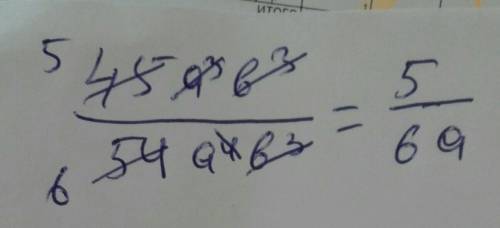 итого
5 45 a³ b³ / 6 54 a⁴ b³ = 5 / 6a